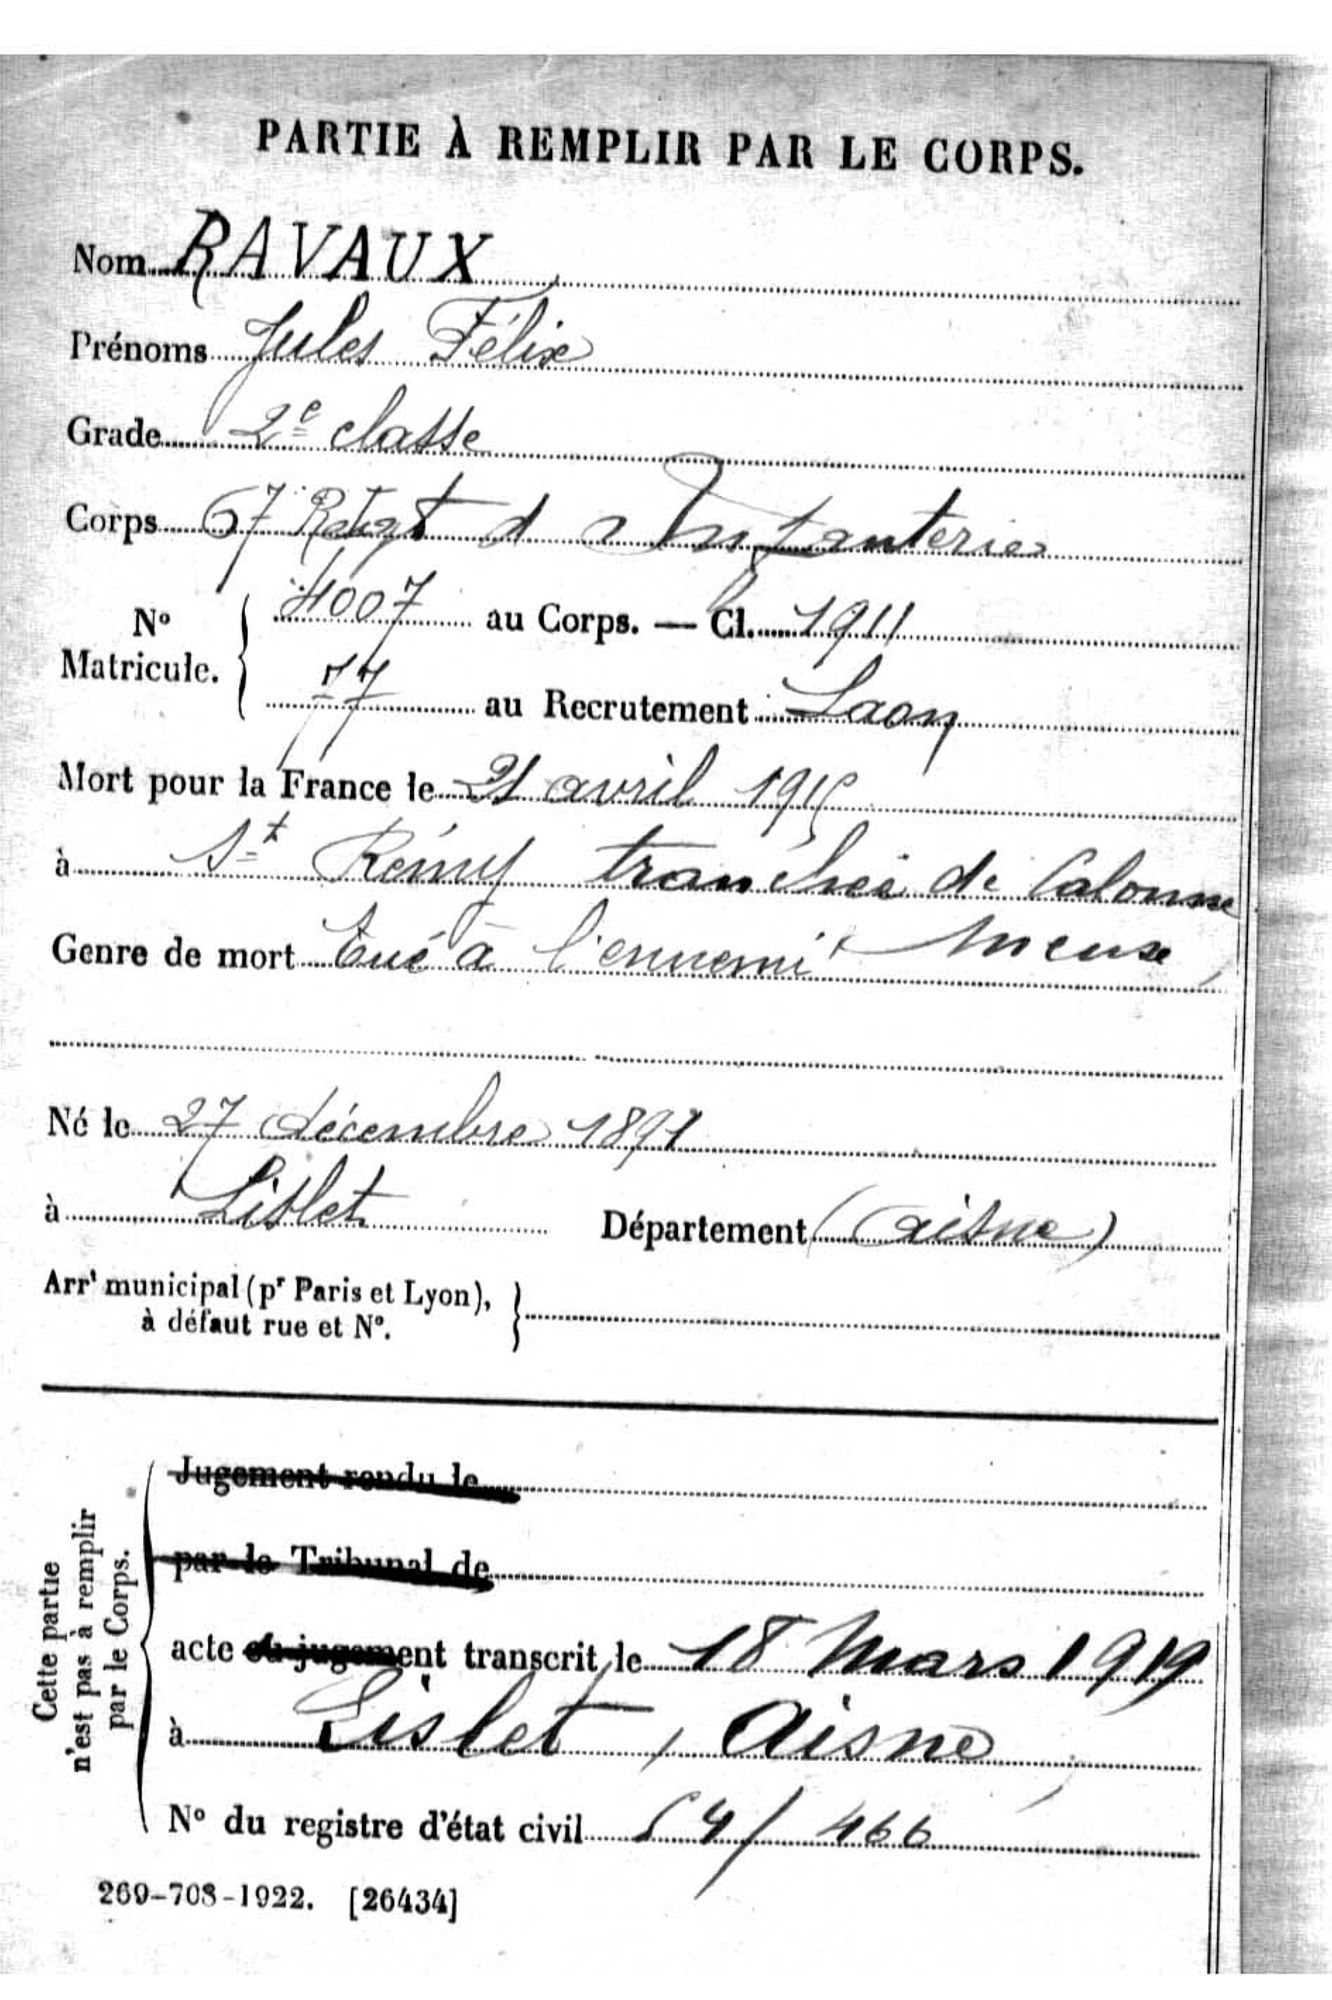 PARTIE À REMPLIR PAR LE CORPS.
Nom RAVAUX
Prénoms Jules Félix
Grade 2e classe
Corps 67 Régt d'Infanterie
No Matricule. { 4007 au Corps. — Cl. 1911
77 au Recrutement Laon
Mort pour la France le 21 avril 1915
à St Rémy tranchée de Calonne
Genre de mort Tué à l'ennemi Meuse
Né le 27 décembre 1891
à Lislet Département (Aisne)
Arrt municipal (pr Paris et Lyon), }
à défaut rue et No.
Cette partie
n'est pas à remplir
par le Corps.
Jugement rendu le
par le Tribunal de
acte ou jugement transcrit le 18 Mars 1919
à Lislet, Aisne
No du registre d'état civil 54/466
269-708-1922. [26434]